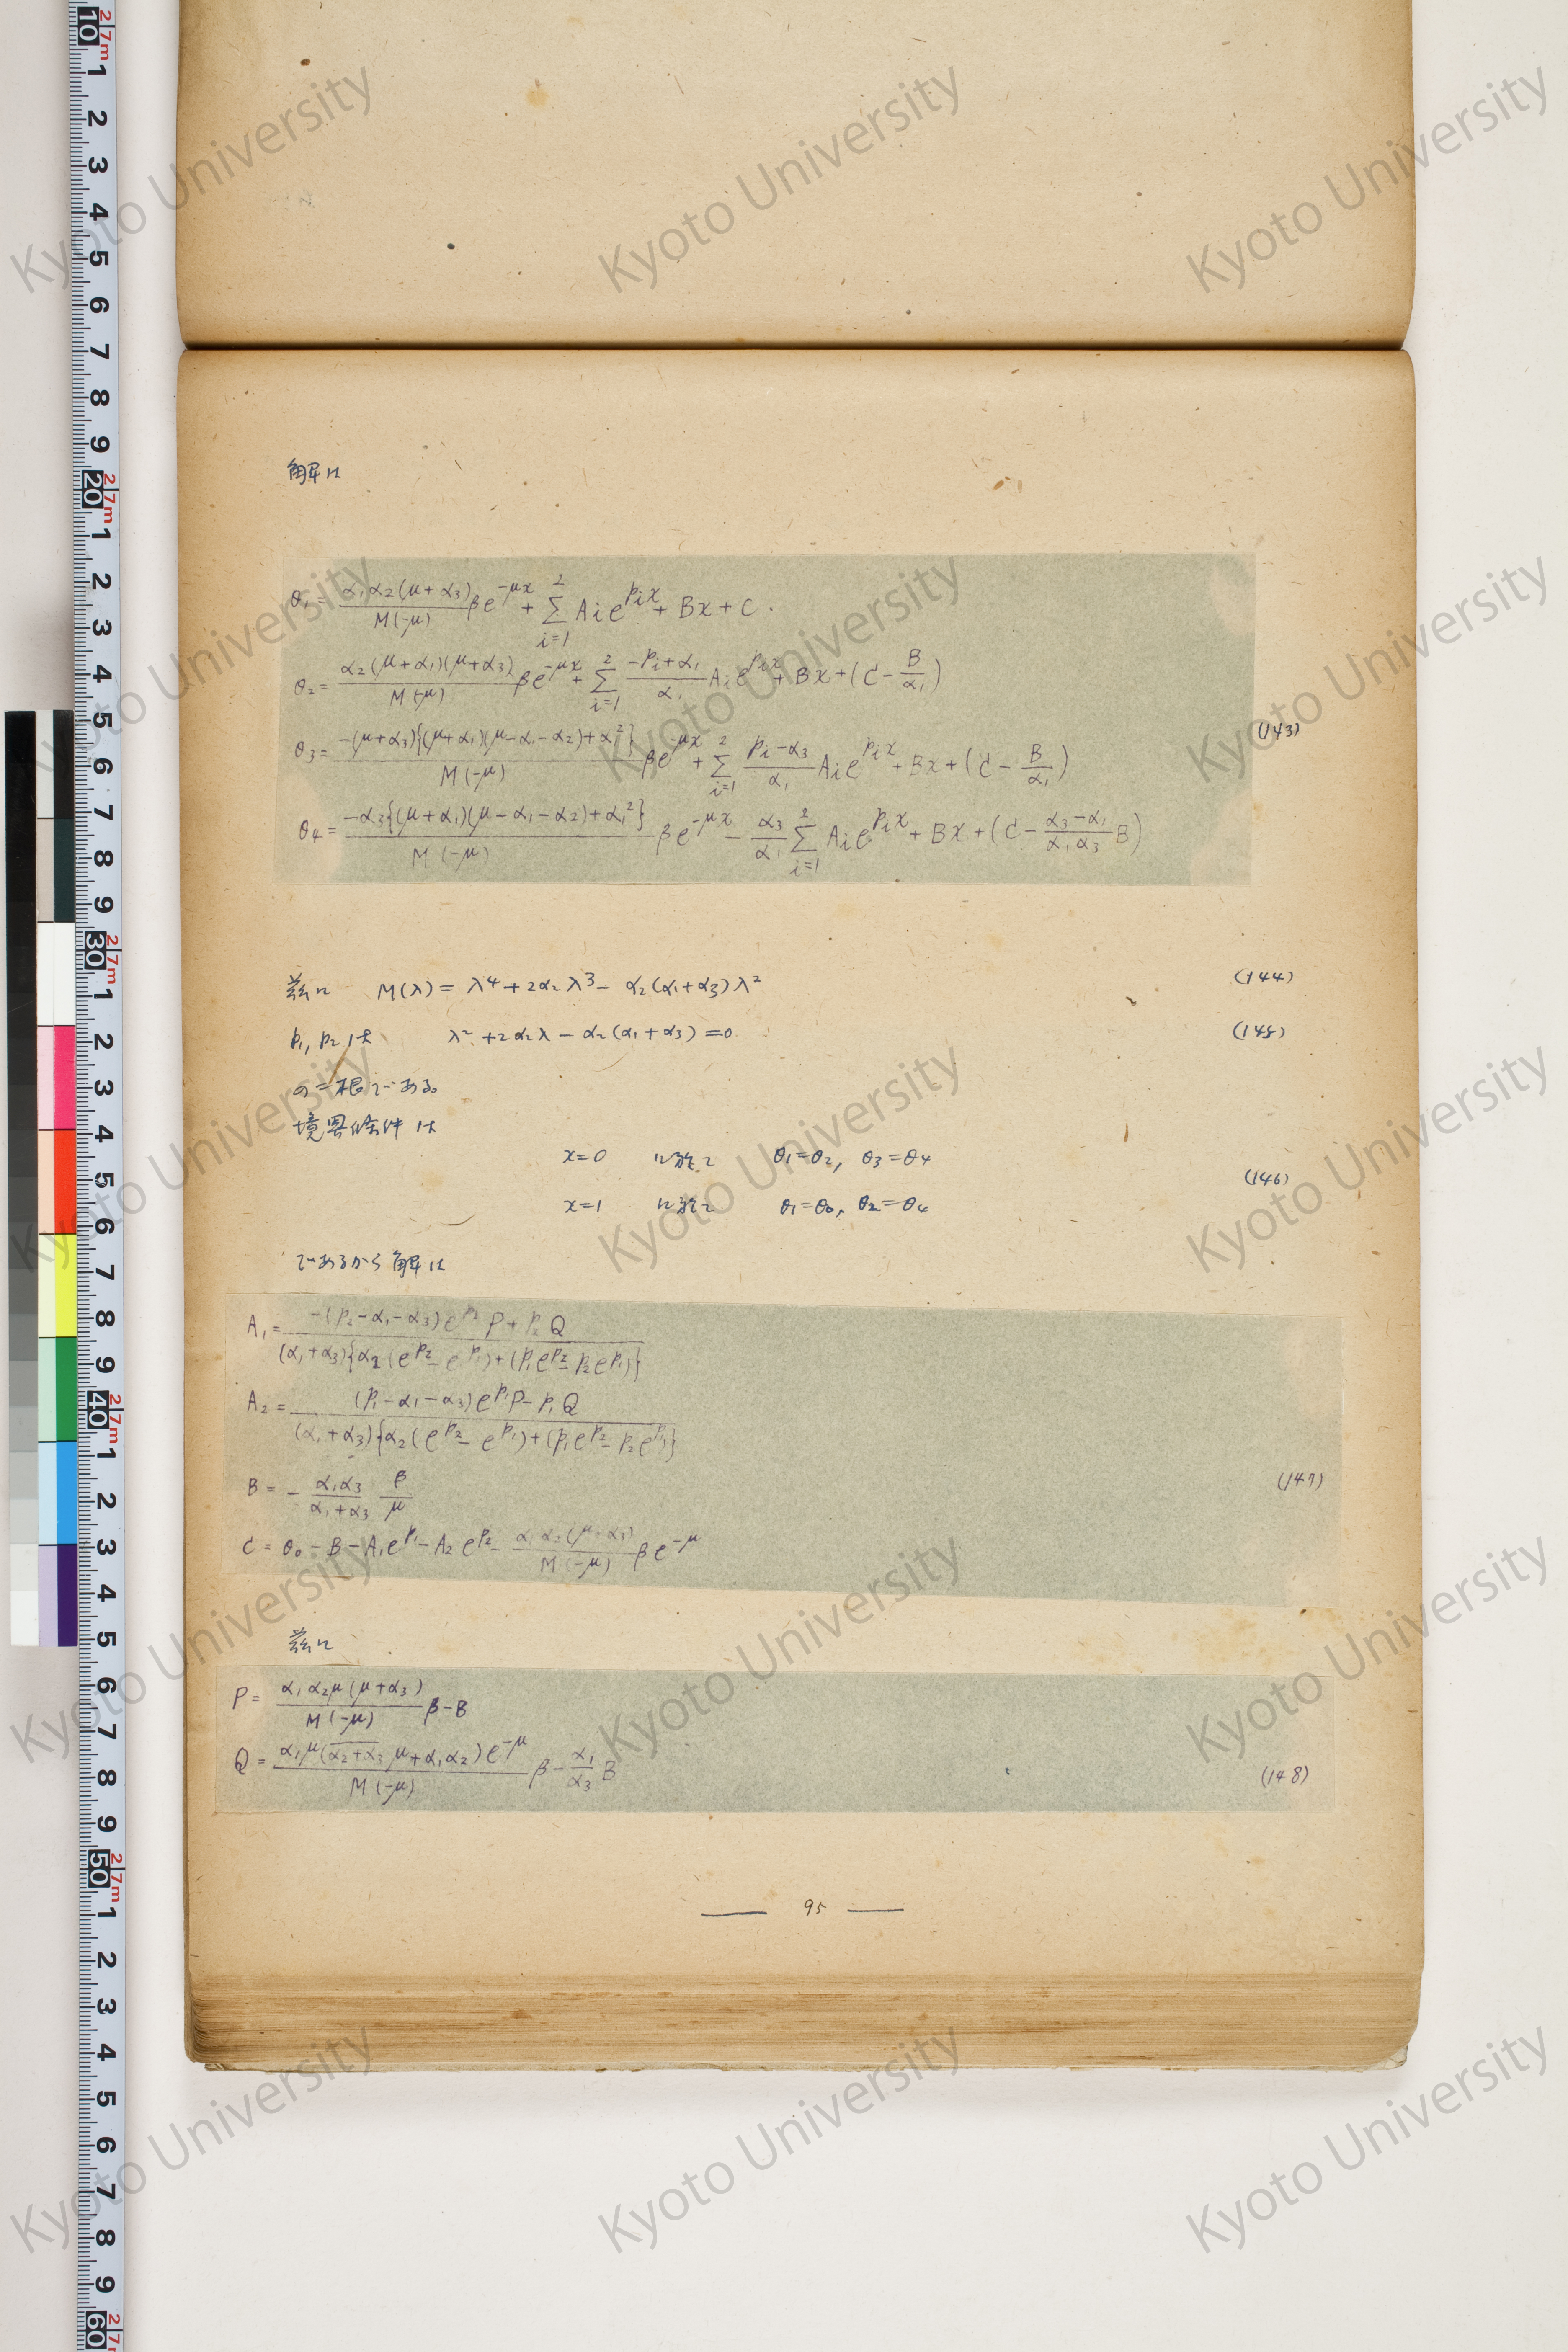 解は
θ₁ = α₁α₂(μ+α₃)/M(-μ) βe^{-μx} + Σ_{i=1}^{2} Aᵢe^{pᵢx} + Bx + C.
θ₂ = α₂(μ+α₁)(μ+α₃)/M(-μ) βe^{-μx} + Σ_{i=1}^{2} (-pᵢ+α₁)/α₁ Aᵢe^{pᵢx} + Bx + (C - B/α₁)
θ₃ = -(μ+α₃){(μ+α₁)(μ-α₁-α₂)+α₁²}/M(-μ) βe^{-μx} + Σ_{i=1}^{2} (pᵢ-α₃)/α₁ Aᵢe^{pᵢx} + Bx + (C - B/α₁)
(143)
θ₄ = -α₃{(μ+α₁)(μ-α₁-α₂)+α₁²}/M(-μ) βe^{-μx} - α₃/α₁ Σ_{i=1}^{2} Aᵢe^{pᵢx} + Bx + (C - (α₃-α₁)/(α₁α₃) B)
茲に M(λ) = λ⁴+2α₂λ³- α₂(α₁+α₃)λ² (144)
p₁, p₂ は λ²+2α₂λ - α₂(α₁+α₃) = 0 (145)
の二根である。
境界條件は
x=0 に於て θ₁=θ₂, θ₃=θ₄
(146)
x=1 に於て θ₁=θ₀, θ₂=θ₄
であるから解は
A₁ = {-(p₂-α₁-α₃)e^{p₂}P + p₂Q}/[(α₁+α₃){α₂(e^{p₂} - e^{p₁})+(p₁e^{p₂} - p₂e^{p₁})}]
A₂ = {(p₁-α₁-α₃)e^{p₁}P - p₁Q}/[(α₁+α₃){α₂(e^{p₂} - e^{p₁})+(p₁e^{p₂} - p₂e^{p₁})}]
B = - α₁α₃/(α₁+α₃) β/μ (147)
C = θ₀ - B - A₁e^{p₁} - A₂e^{p₂} - α₁α₂(μ+α₃)/M(-μ) βe^{-μ}
茲に
P = α₁α₂μ(μ+α₃)/M(-μ) β - B
Q = α₁μ(α₂+α₃ μ+α₁α₂)e^{-μ}/M(-μ) β - α₁/α₃ B (148)
95
Kyoto University